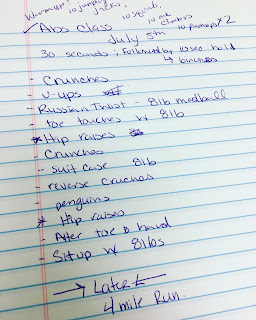 Warmup: 10 jumping jacks, 10 squats,
10 mt climbers
10 pushups x 2
Abs Class
July 5th
30 seconds; followed by 10 sec hold
- Crunches
- V-ups
- Russian Twist - 8lb medball
- toe touches w 8lb
* Hip raises
- Crunches
- suit case 8lb
- reverse cruches
- penguins
* Hip raises
- Alter toe & hand
- Situp w 8lbs
→ Later
4 mile Run.